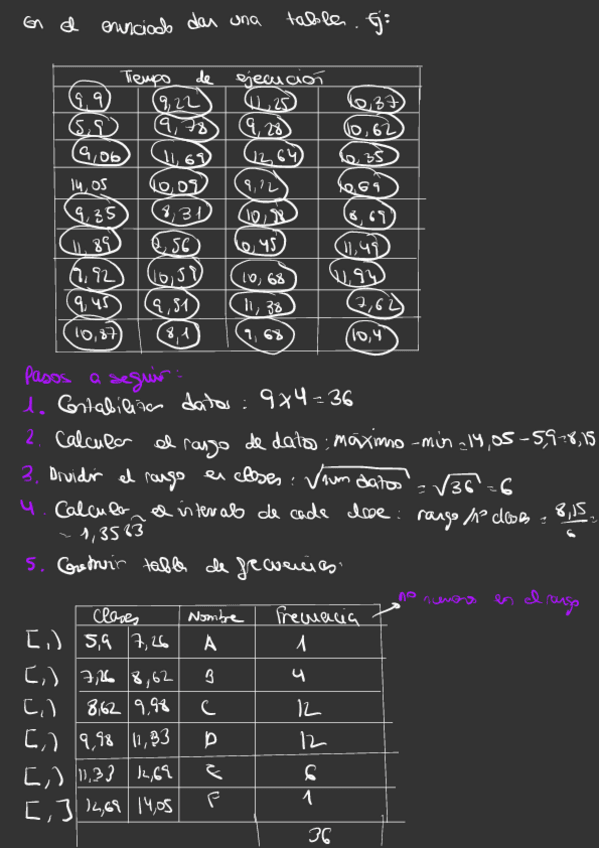 En el enunciado dan una tabla. Ej:
Tiempo de ejecución
9,9 9,22 11,25 10,37
5,9 9,78 9,28 10,62
9,06 11,69 12,64 10,35
14,05 10,09 9,12 10,69
9,35 8,31 10,98 8,69
11,89 9,56 10,45 11,49
7,92 10,59 10,68 11,94
9,45 9,51 11,38 7,62
10,87 8,1 9,68 10,4
Pasos a seguir:
1. Contabilizar datos: 9x4=36
2. Calcular el rango de datos: máximo - min = 14,05 - 5,9 = 8,15
3. Dividir el rango en clases: √num datos = √36 = 6
4. Calcular el intervalo de cada clase: rango/nº clases = 8,15/6 =
= 1,3583
5. Construir tabla de frecuencias.
nº numeros en el rango
Clases Nombre Frecuencia
[,) 5,9 7,26 A 1
[,) 7,26 8,62 B 4
[,) 8,62 9,98 C 12
[,) 9,98 11,33 D 12
[,) 11,33 12,69 E 6
[,] 12,69 14,05 F 1
36